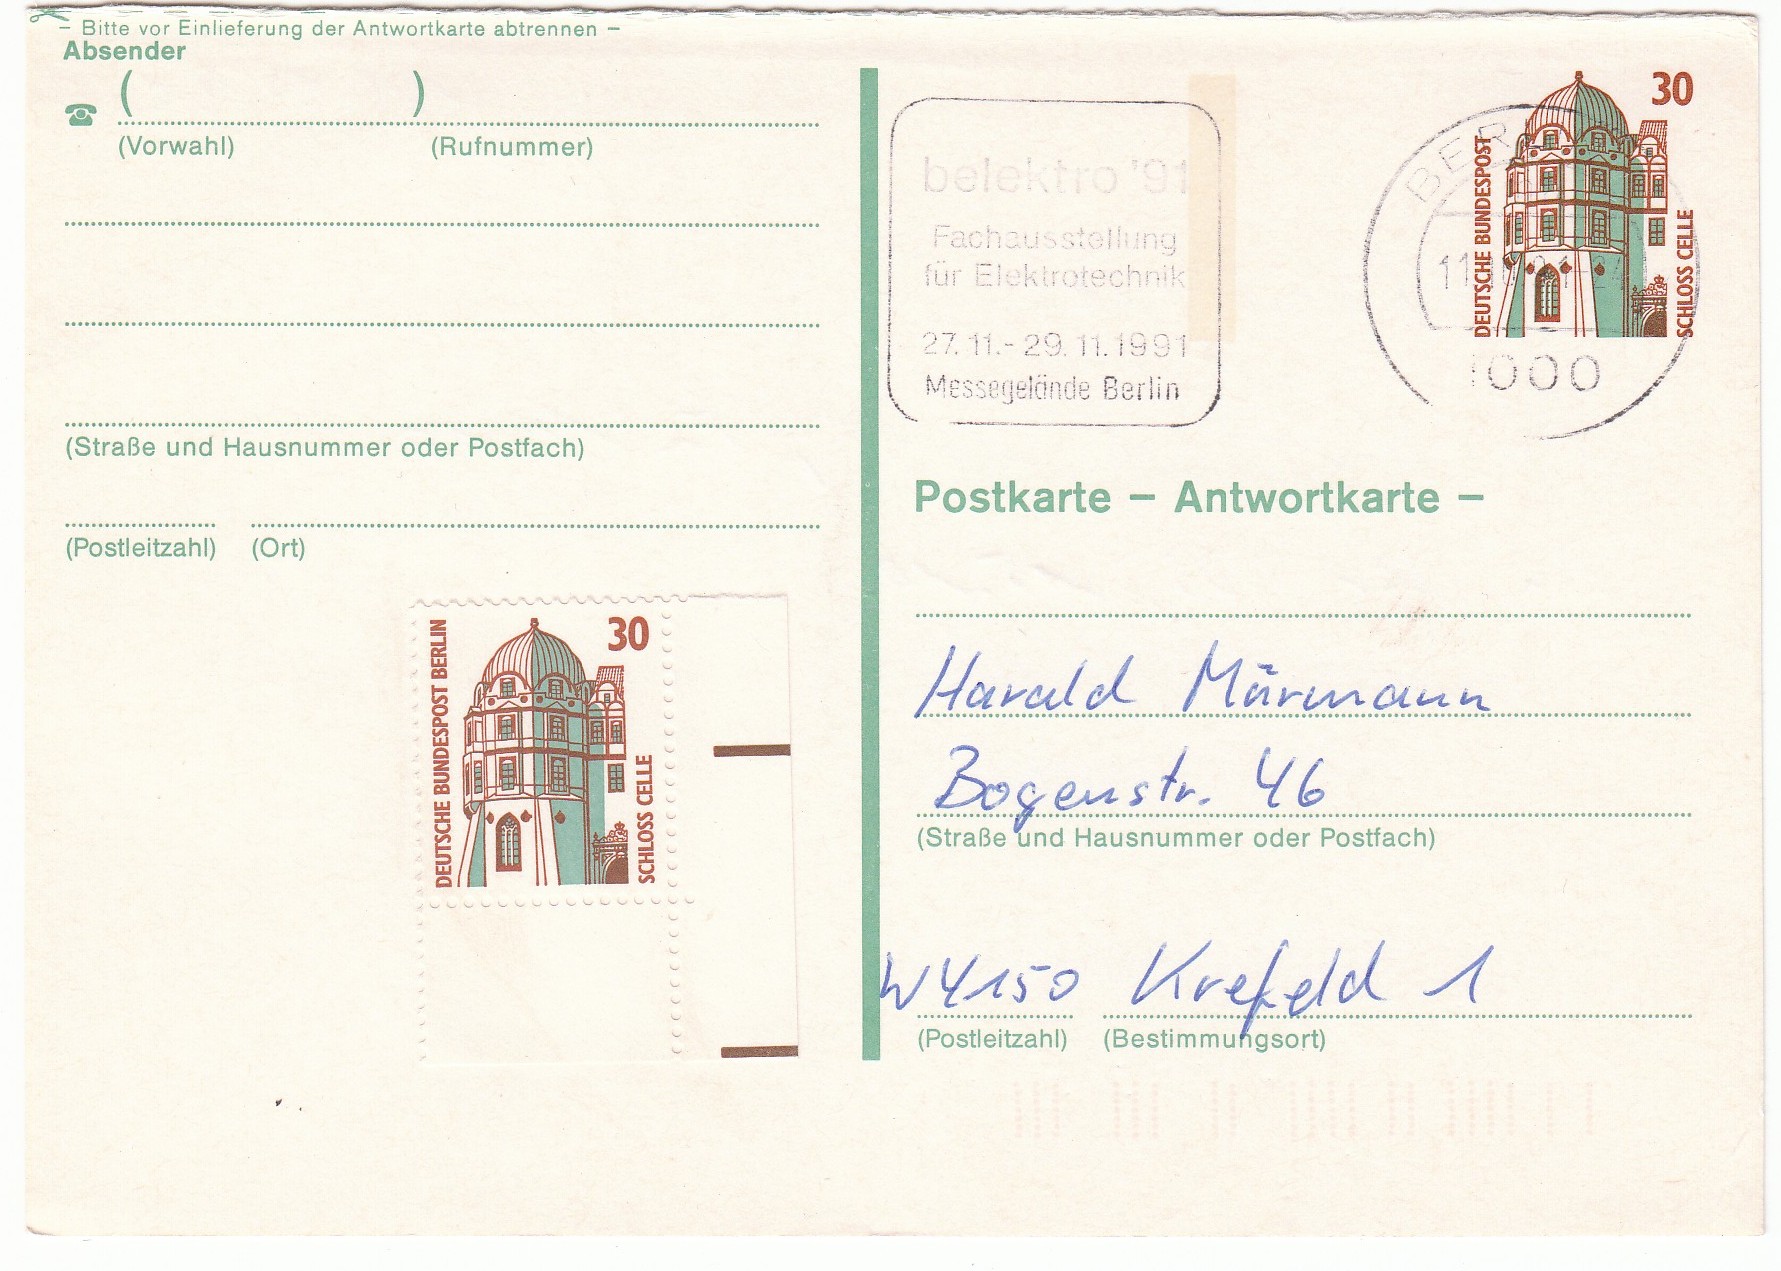 – Bitte vor Einlieferung der Antwortkarte abtrennen –
Absender
( )
(Vorwahl) (Rufnummer)
(Straße und Hausnummer oder Postfach)
(Postleitzahl) (Ort)
30
DEUTSCHE BUNDESPOST BERLIN
SCHLOSS CELLE
belektro '91
Fachausstellung
für Elektrotechnik
27.11.- 29.11.1991
Messegelände Berlin
1000
30
DEUTSCHE BUNDESPOST
SCHLOSS CELLE
Postkarte – Antwortkarte –
Harald Mörmann
Bogenstr. 46
(Straße und Hausnummer oder Postfach)
W4150 Krefeld 1
(Postleitzahl) (Bestimmungsort)